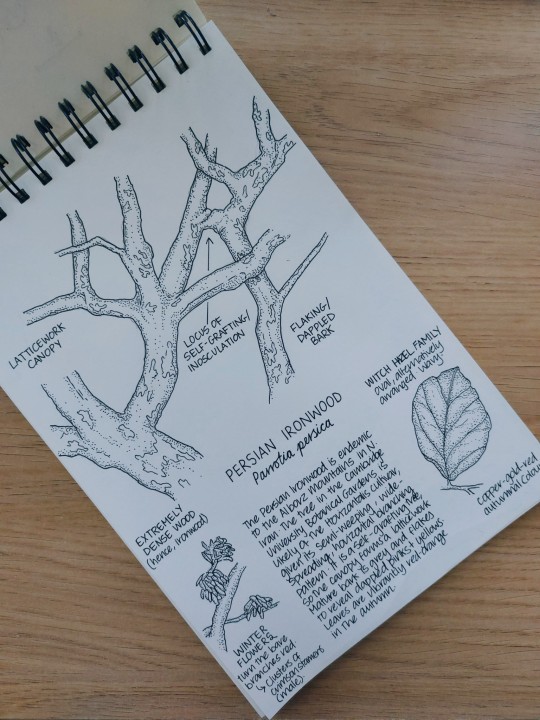 LATTICEWORK
CANOPY
LOCUS OF
SELF-GRAFTING/
INOSCULATION
FLAKING/
DAPPLED
BARK
WITCH HAZEL FAMILY
oval, alternatively
arranged leaves
copper-gold-red
autumnal colour
PERSIAN IRONWOOD
Parrotia persica
The Persian Ironwood is endemic
to the Alborz mountains in N.
Iran. The tree in the Cambridge
University Botanical Gardens is
likely of the Horizontalis cultivar,
given its semi weeping, wide-
spreading, horizontal branching
pattern. It is a self-grafting tree
so the canopy forms a latticework
Mature bark is grey and flakes
to reveal dappled pinks & yellows
Leaves are vibrantly red-orange
in the autumn.
EXTREMELY
DENSE WOOD
(hence, ironwood)
WINTER
FLOWERS
turn the bare
branches red
↳ clusters of
crimson stamens
(male).